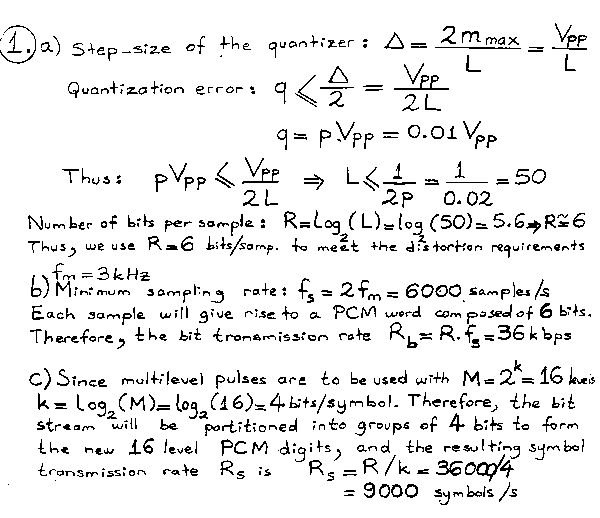 1. a) Step-size of the quantizer: Δ = 2m max / L = Vpp / L
Quantization error: q ⩽ Δ/2 = Vpp / 2L
q = p.Vpp = 0.01 Vpp
Thus: pVpp ⩽ Vpp / 2L ⇒ L ⩽ 1/2P = 1/0.02 = 50
Number of bits per sample: R = Log₂(L) = log₂(50) = 5.6 → R ≅ 6
Thus, we use R = 6 bits/samp. to meet the distortion requirements
fm = 3kHz
b) Minimum sampling rate: fs = 2fm = 6000 samples/s
Each sample will give rise to a PCM word composed of 6 bits.
Therefore, the bit transmission rate Rb = R.fs = 36 kbps
c) Since multilevel pulses are to be used with M = 2^k = 16 levels
k = Log₂(M) = log₂(16) = 4 bits/symbol. Therefore, the bit
stream will be partitioned into groups of 4 bits to form
the new 16 level PCM digits, and the resulting symbol
transmission rate Rs is Rs = R/k = 36000/4
= 9000 symbols/s